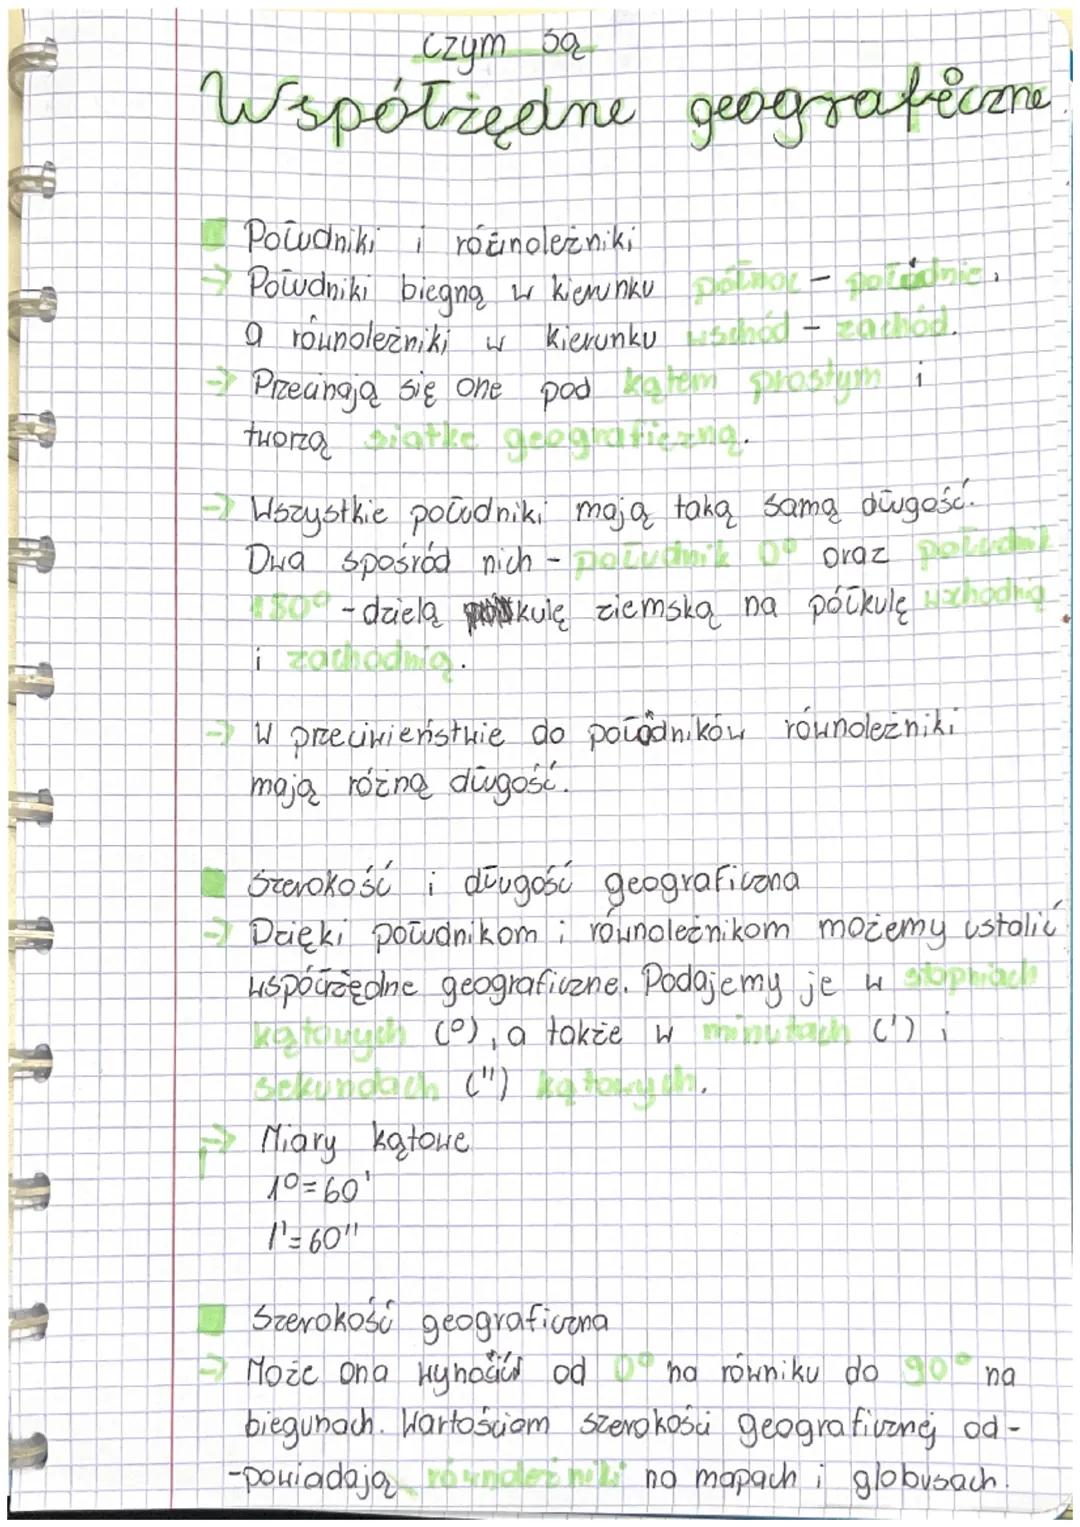 czym są
Współrzędne geograficzne
Południki i równoleżniki
→ Południki biegną w kierunku północ - południe,
a równoleżniki w kierunku wschód - zachód.
→ Przecinają się one pod kątem prostym i
tworzą siatkę geograficzną.
→ Wszystkie południki mają taką samą długość.
Dwa spośród nich - południk 0° oraz południk
180° - dzielą kulę ziemską na półkulę wschodnią
i zachodnią.
→ W przeciwieństwie do południków równoleżniki
mają różną długość.
Szerokość i długość geograficzna
→ Dzięki południkom i równoleżnikom możemy ustalić
współrzędne geograficzne. Podajemy je w stopniach
kątowych (°), a także w minutach (') i
sekundach ('') kątowych.
→ Miary kątowe
1°=60'
1'=60''
Szerokość geograficzna
→ Może ona wynosić od 0° na równiku do 90° na
biegunach. Wartościom szerokości geograficznej od-
-powiadają równoleżniki na mapach i globusach.